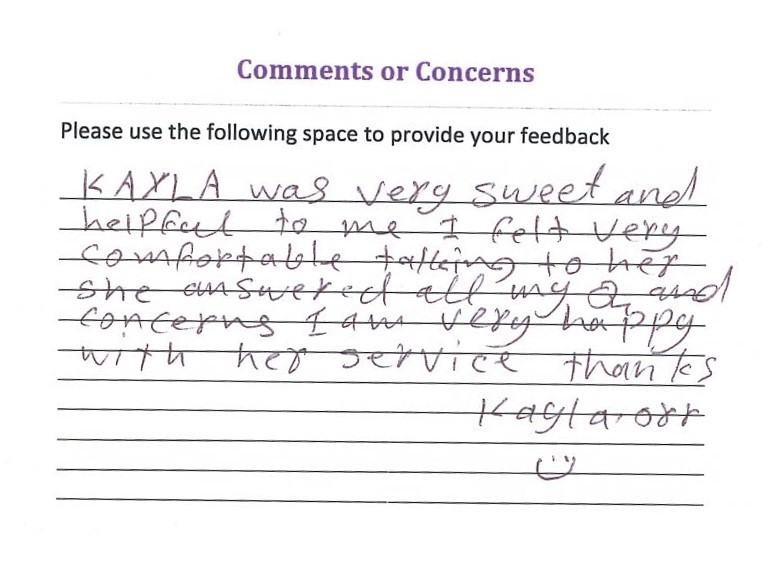 Comments or Concerns
Please use the following space to provide your feedback
KAYLA was very sweet and
helpful to me I felt very
comfortable talking to her
she answered all my Q and
concerns I am very happy
with her service thanks
Kayla orr